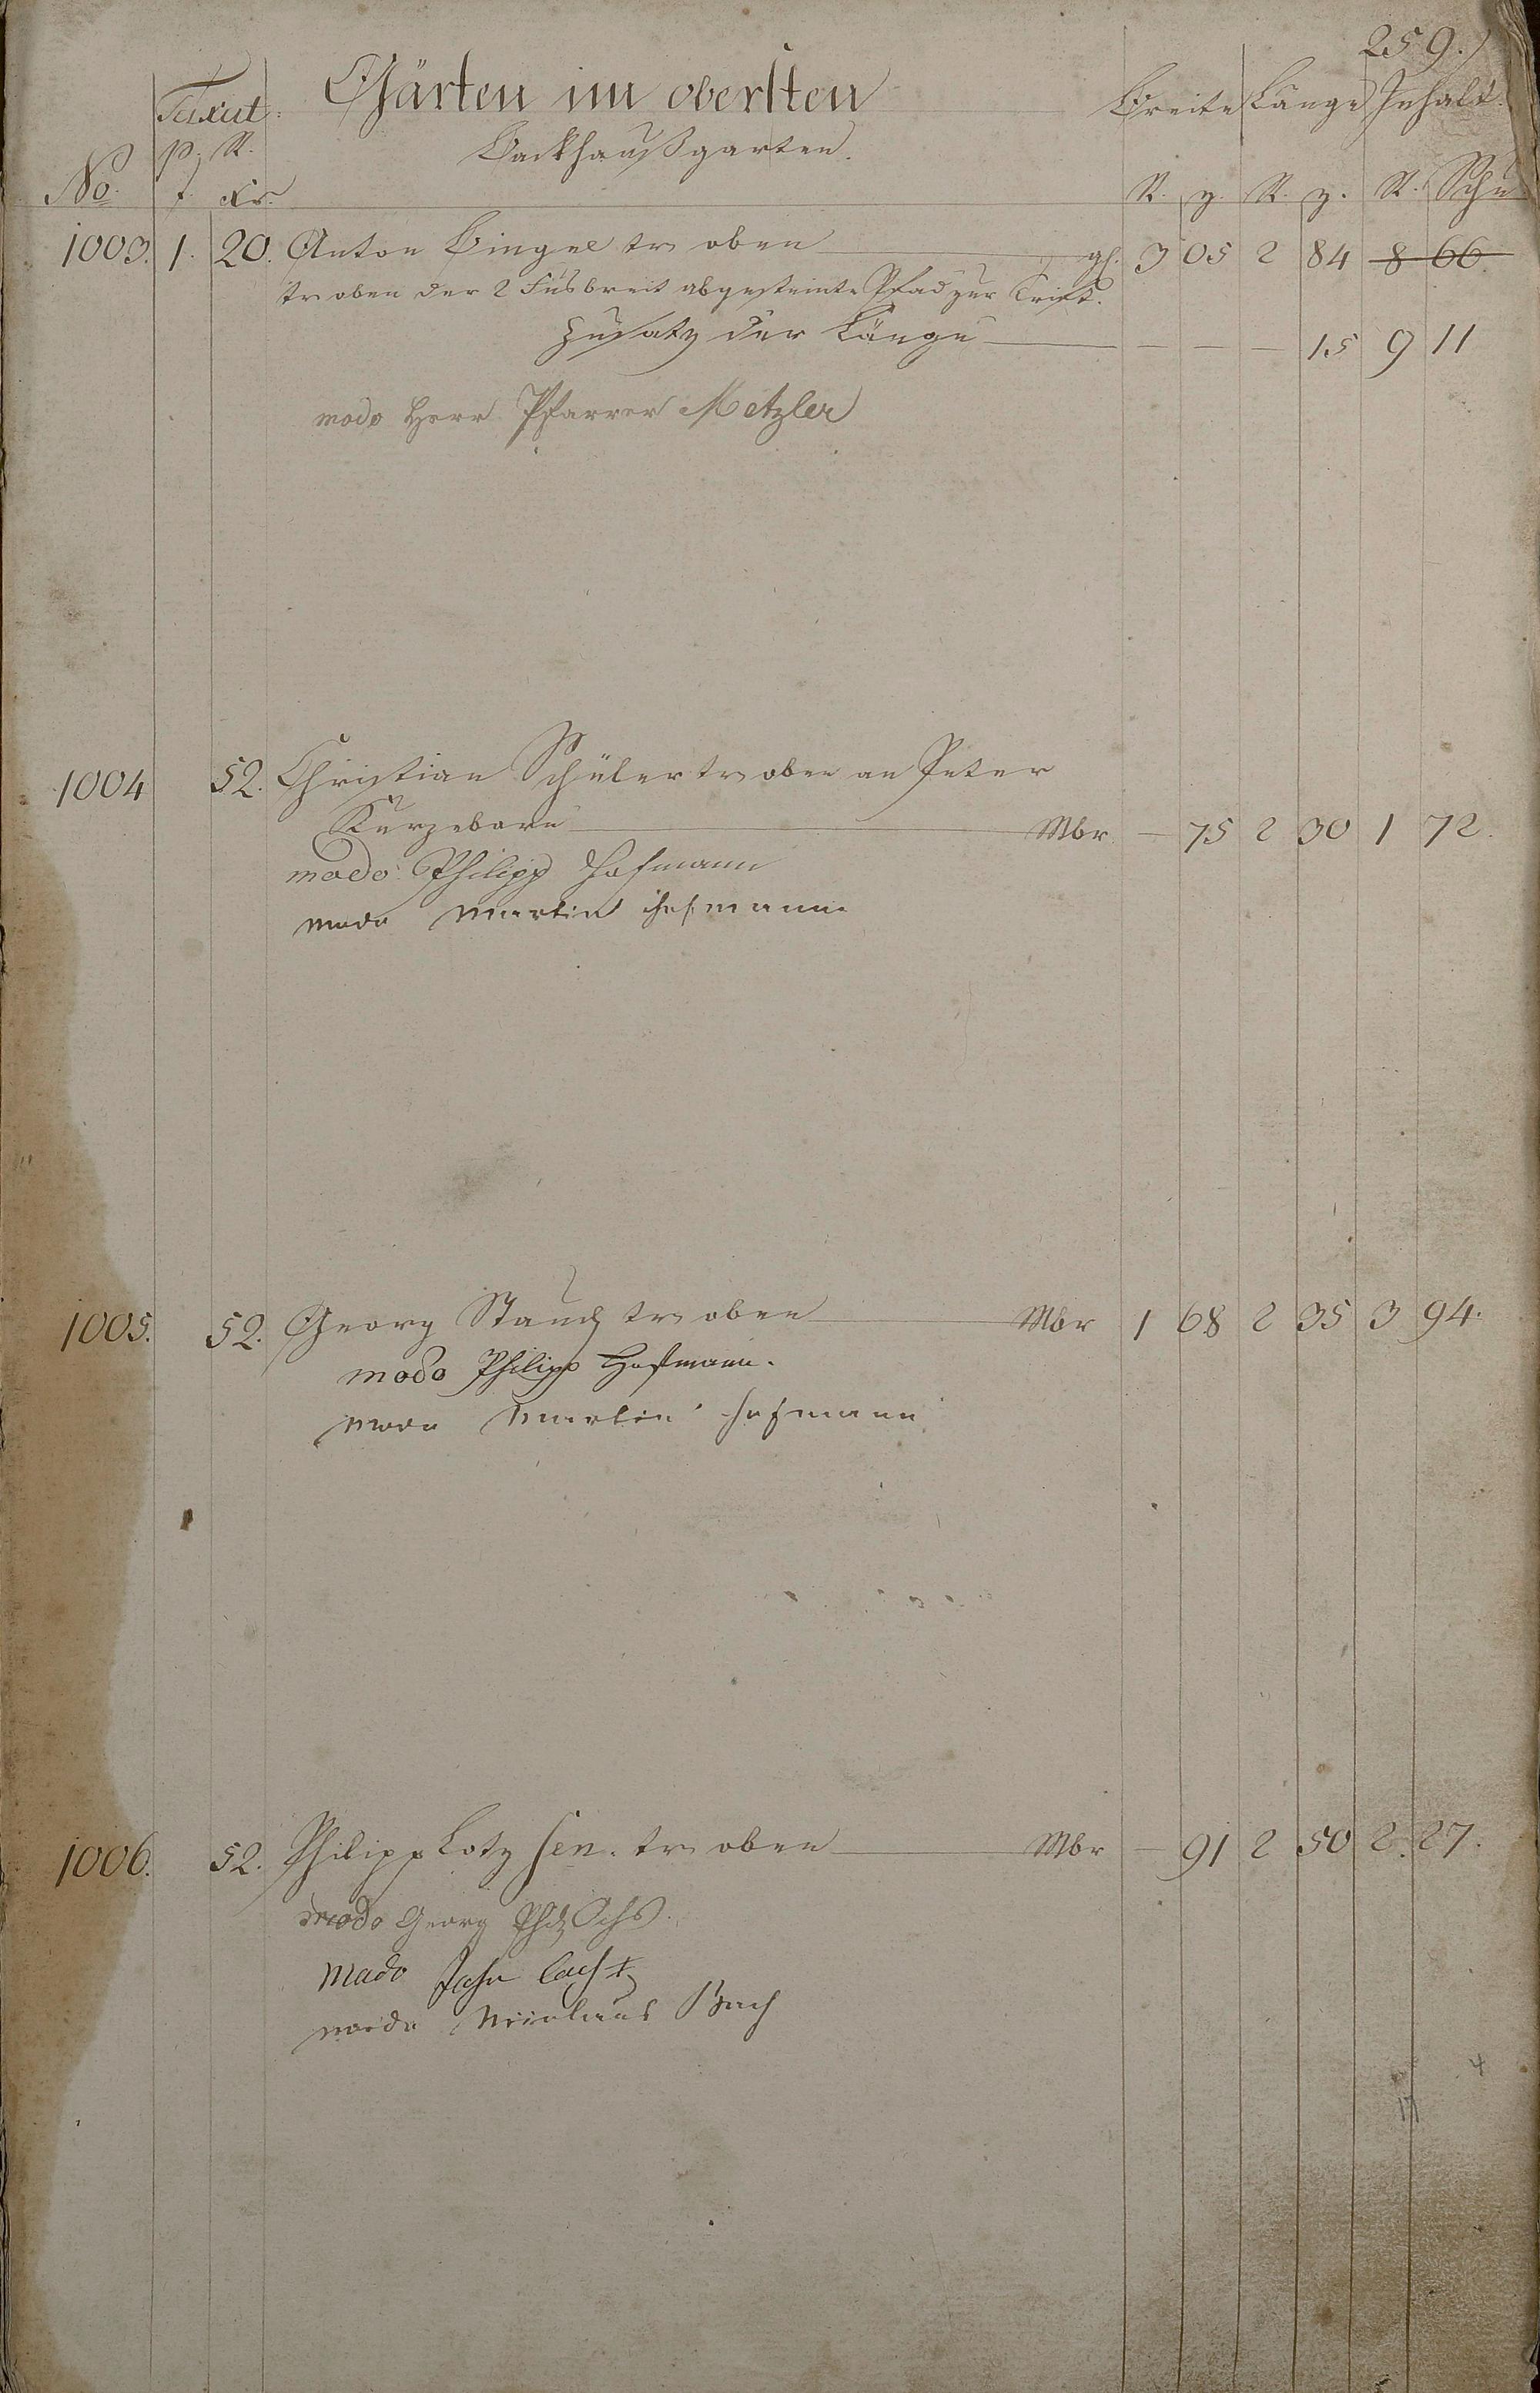 259.
Taxat. Gärten im obersten Breite Länge Inhalt.
p. R. Backhaußgarten.
No. f. Xr. R. z. R. z. R. Schu
1003. 1. 20. Anton Bingel tr. oben gl. 3 05 2 84 8 66
tr. oben der 2 Fusbreit abgesteinte Pfad zur Trift.
Zusatz der Länge — — — 15 9 11
modo Herr Pfarrer Metzler
1004 52. Christian Schüler tr. oben an Peter
Kurzebare Mbr. — 75 2 30 1 72.
modo Philipp Hofmann
modo Martin Hofmann
1005. 52. Georg Stauch tr. oben Mbr 1 68 2 35 3 94.
modo Philipp Hofmann.
modo Martin Hofmann
1006. 52. Philipp Lotz sen. tr. oben Mbr — 91 2 50 2. 27.
modo Georg Ochs.
modo
modo Nicolaus Bach
4
17